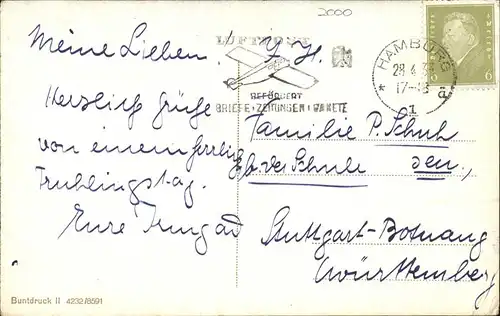 2000
Meine Lieben!
Herzlich Grüße
von einem herrlig
Frühlingstag.
Eure Irmgard
LUFTPOST
BEFÖRDERT
BRIEFE·ZEITUNGEN·PAKETE
HAMBURG
28.4.
17-18
1
6 6
Y. H.
Familie P. Schuh
der Schule
Stuttgart-Botnang
(Württemberg
Buntdruck II 4232/8591